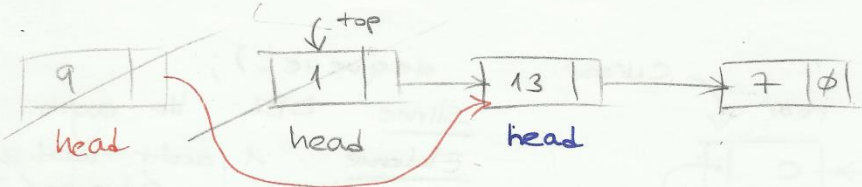 top
9 1 13 7 ∅
head head head